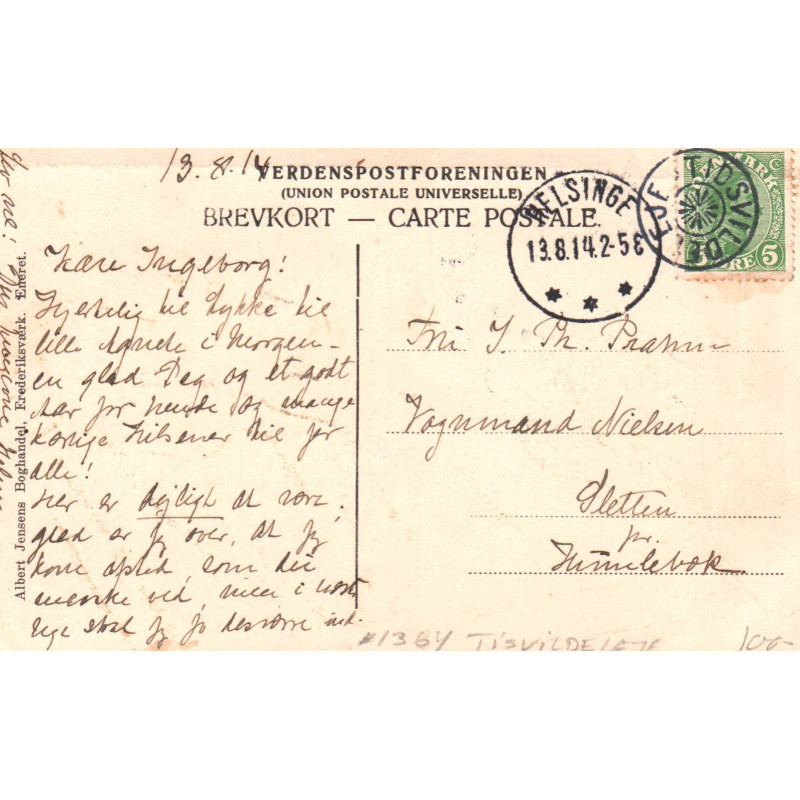 13.8.14
VERDENSPOSTFORENINGEN
(UNION POSTALE UNIVERSELLE)
BREVKORT — CARTE POSTALE.
HELSINGE
13.8.14. 2-5 E
TIDSVILDELEJE
DANMARK
5 ØRE 5
Kære Ingeborg!
Hjertelig til Lykke til
lille Agnete i Morgen -
en glad Dag og et godt
Aar for hende og mange
kærlige Hilsener til jer
alle!
Her er dejligt at være,
glad er jeg over, at jeg
kom afsted, som du
maaske ved, men i næste
Uge skal jeg jo desværre ind.
Frü J. Th. Prahm
Vognmand Nielsen
Sletten
pr.
Humlebæk.
Albert Jensens Boghandel, Frederiksværk. Eneret.
#1364 TISVILDELEJE
100-